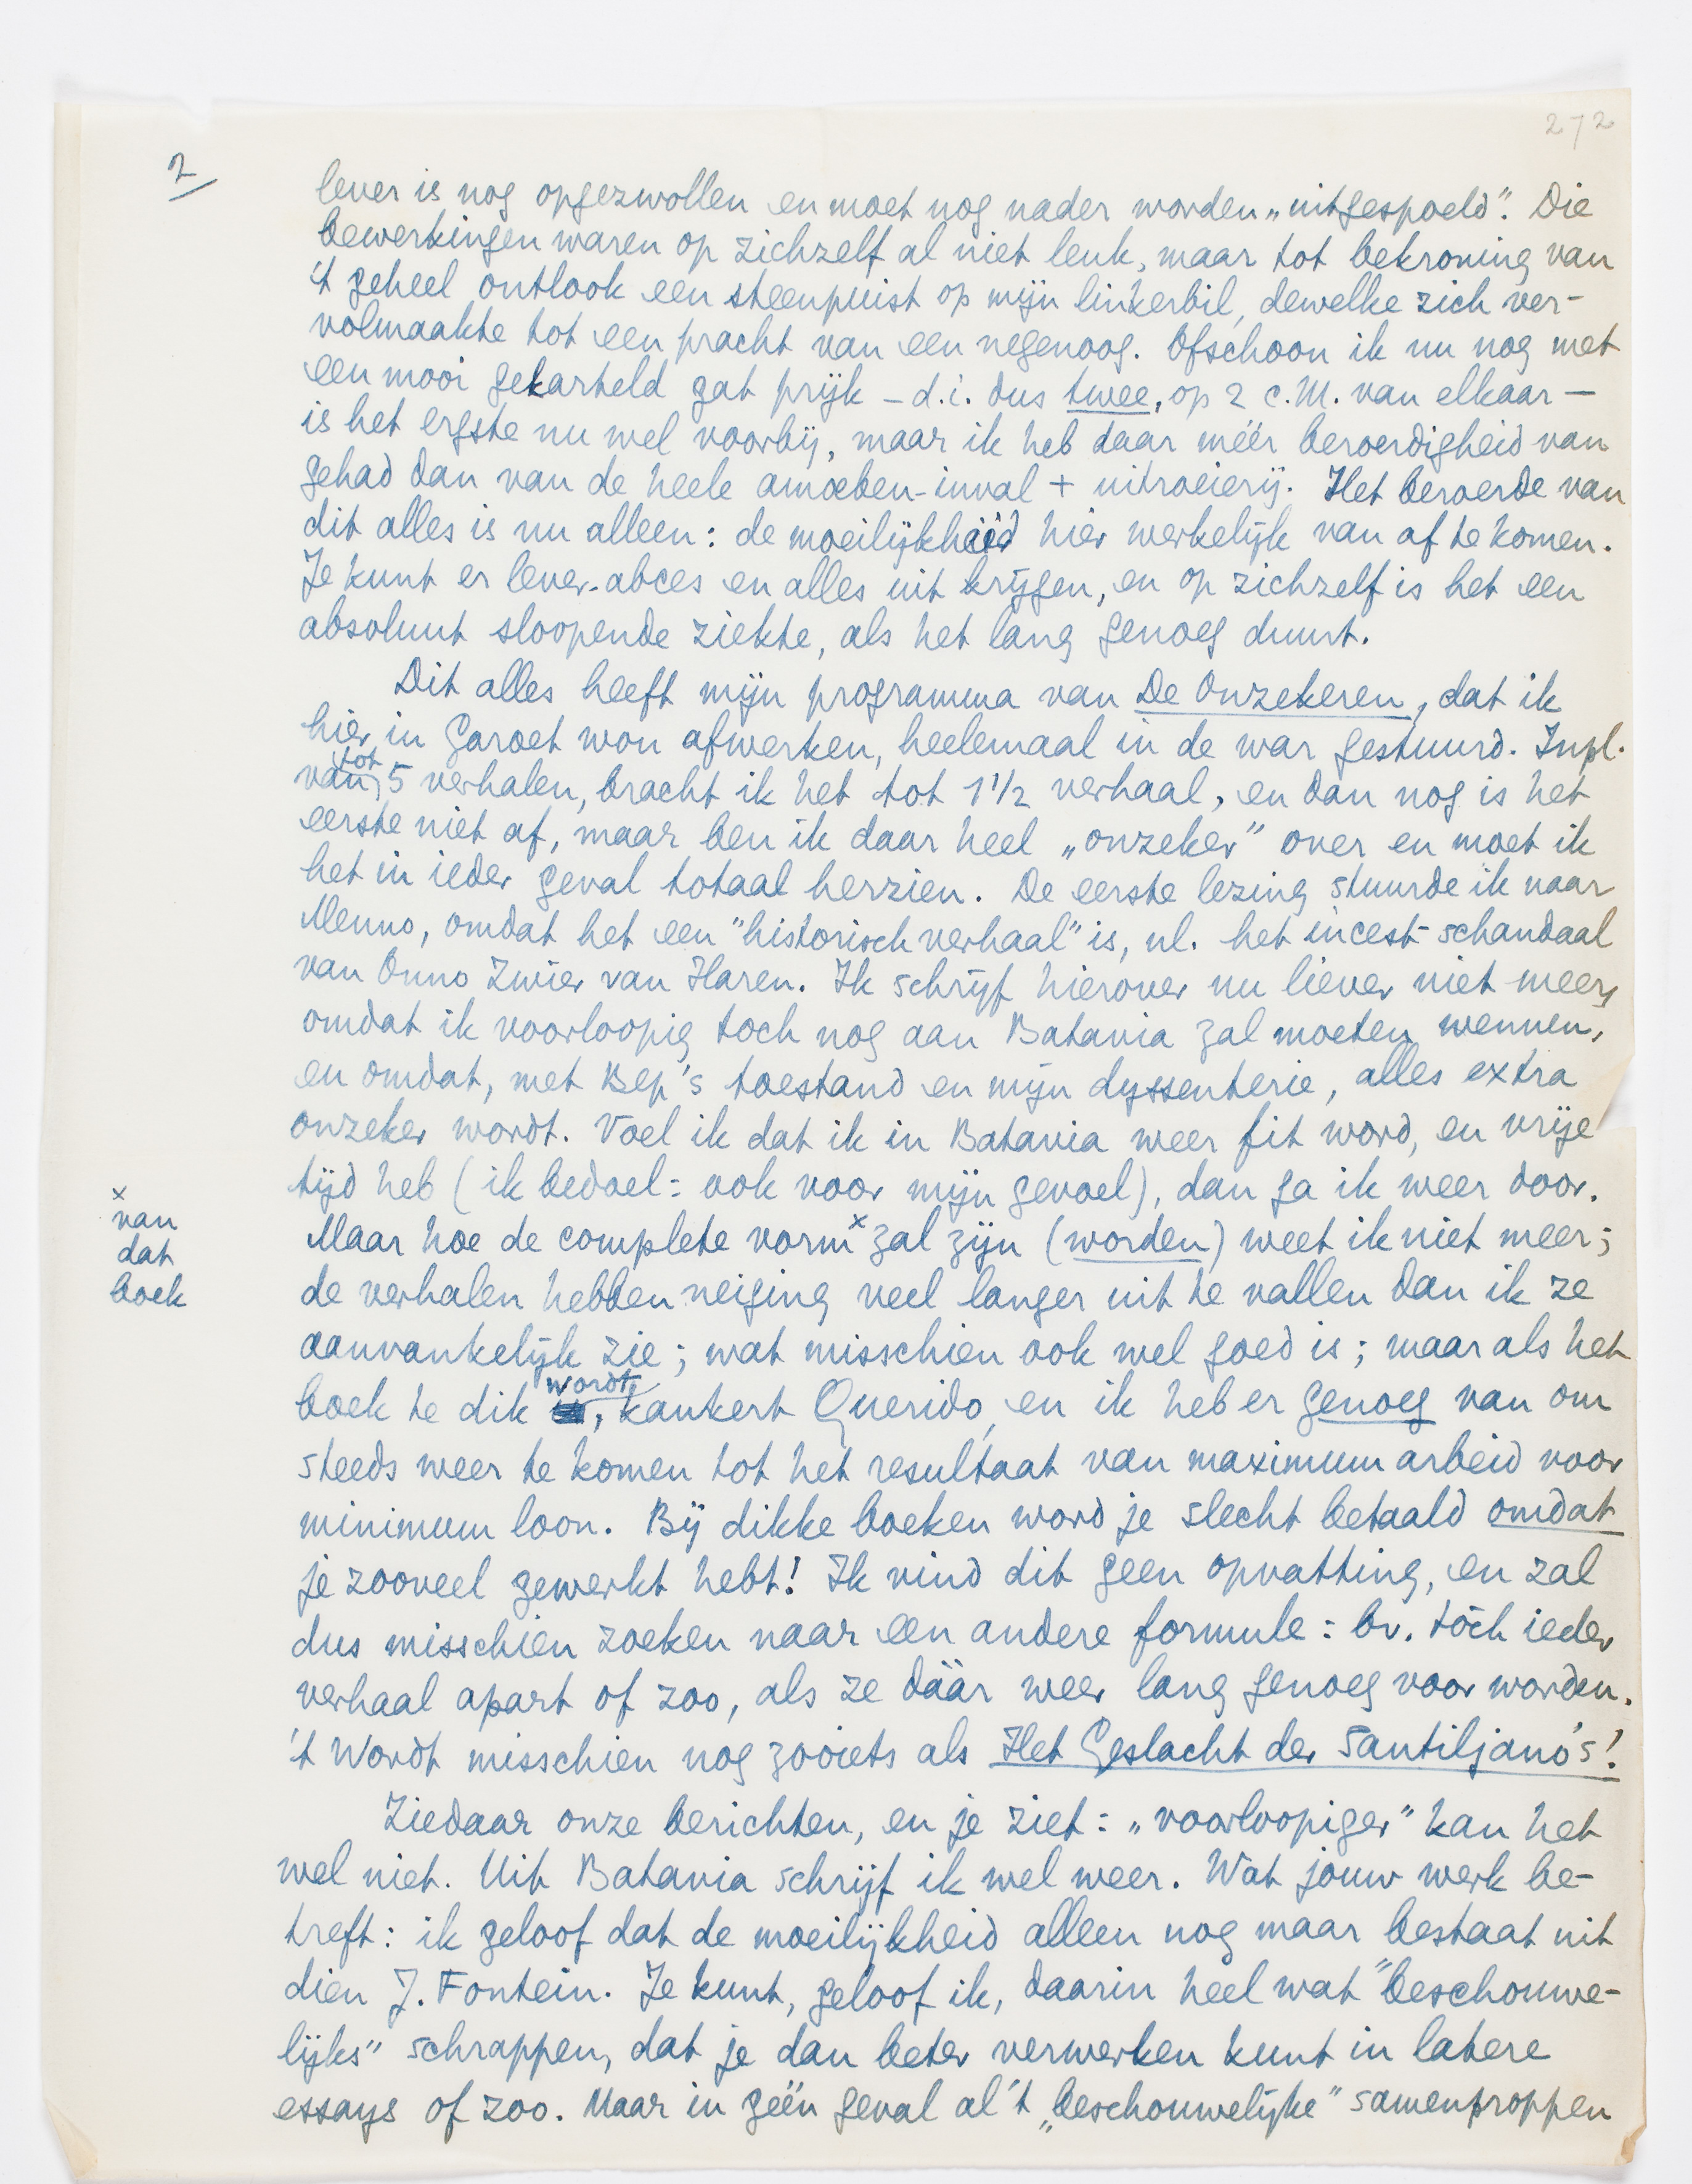 272
2
lever is nog opgezwollen en moet nog nader worden „uitgespoeld”. Die
bewerkingen waren op zichzelf al niet leuk, maar tot bekroning van
't geheel ontlook een steenpuist op mijn linkerbil, dewelke zich ver-
volmaakte tot een pracht van een negenoog. Ofschoon ik nu nog met
een mooi gekarteld gat prijk – d.i. dus twee, op 2 c.M. van elkaar –
is het ergste nu wel voorbij, maar ik heb daar méér beroerdigheid van
gehad dan van de heele amoeben-inval + uitroeierij. Het beroerde van
dit alles is nu alleen: de moeilijkheid hier werkelijk van af te komen.
Je kunt er lever-abces en alles uit krijgen, en op zichzelf is het een
absoluut sloopende ziekte, als het lang genoeg duurt.
Dit alles heeft mijn programma van De Onzekeren, dat ik
hier in Garoet wou afwerken, heelemaal in de war gestuurd. Inpl.
van tot 5 verhalen, bracht ik het tot 1 1/2 verhaal, en dan nog is het
eerste niet af, maar ben ik daar heel „onzeker” over en moet ik
het in ieder geval totaal herzien. De eerste lezing stuurde ik naar
Menno, omdat het een "historisch verhaal" is, nl. het incest-schandaal
van Onno Zwier van Haren. Ik schrijf hierover nu liever niet meer,
omdat ik voorloopig toch nog aan Batavia zal moeten wennen,
en omdat, met Bep's toestand en mijn dyssenterie, alles extra
onzeker wordt. Voel ik dat ik in Batavia weer fit word, en vrije
tijd heb (ik bedoel: ook voor mijn gevoel), dan ga ik weer door.
Maar hoe de complete vorm x zal zijn (worden) weet ik niet meer;
x
van
dat
boek
de verhalen hebben neiging veel langer uit te vallen dan ik ze
aanvankelijk zie; wat misschien ook wel goed is; maar als het
boek te dik wordt, kankert Querido, en ik heb er genoeg van om
steeds weer te komen tot het resultaat van maximum arbeid voor
minimum loon. Bij dikke boeken word je slecht betaald omdat
je zooveel gewerkt hebt! Ik vind dit geen opvatting, en zal
dus misschien zoeken naar een andere formule: bv. tóch ieder
verhaal apart of zoo, als ze dáár weer lang genoeg voor worden.
't Wordt misschien nog zooiets als Het Geslacht der Santiljano's!
Ziedaar onze berichten, en je ziet: „voorloopiger” kan het
wel niet. Uit Batavia schrijf ik wel weer. Wat jouw werk be-
treft: ik geloof dat de moeilijkheid alleen nog maar bestaat uit
dien J. Fontein. Je kunt, geloof ik, daarin heel wat "beschouwe-
lijks" schrappen, dat je dan beter verwerken kunt in latere
essays of zoo. Maar in géén geval al 't „beschouwelijke” samenproppen